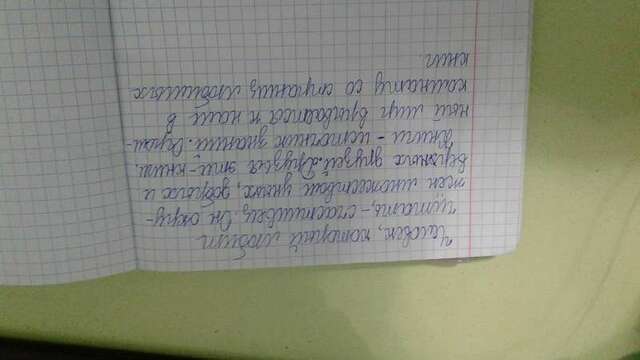 Человек, который любит
читать,- счастливец. Он окру-
жен множеством умных, добрых и
верных друзей. Друзья эти-книги.
Книги - источник знаний. Огром-
ный мир врывается к нам в
комнату со страниц любимых
книг